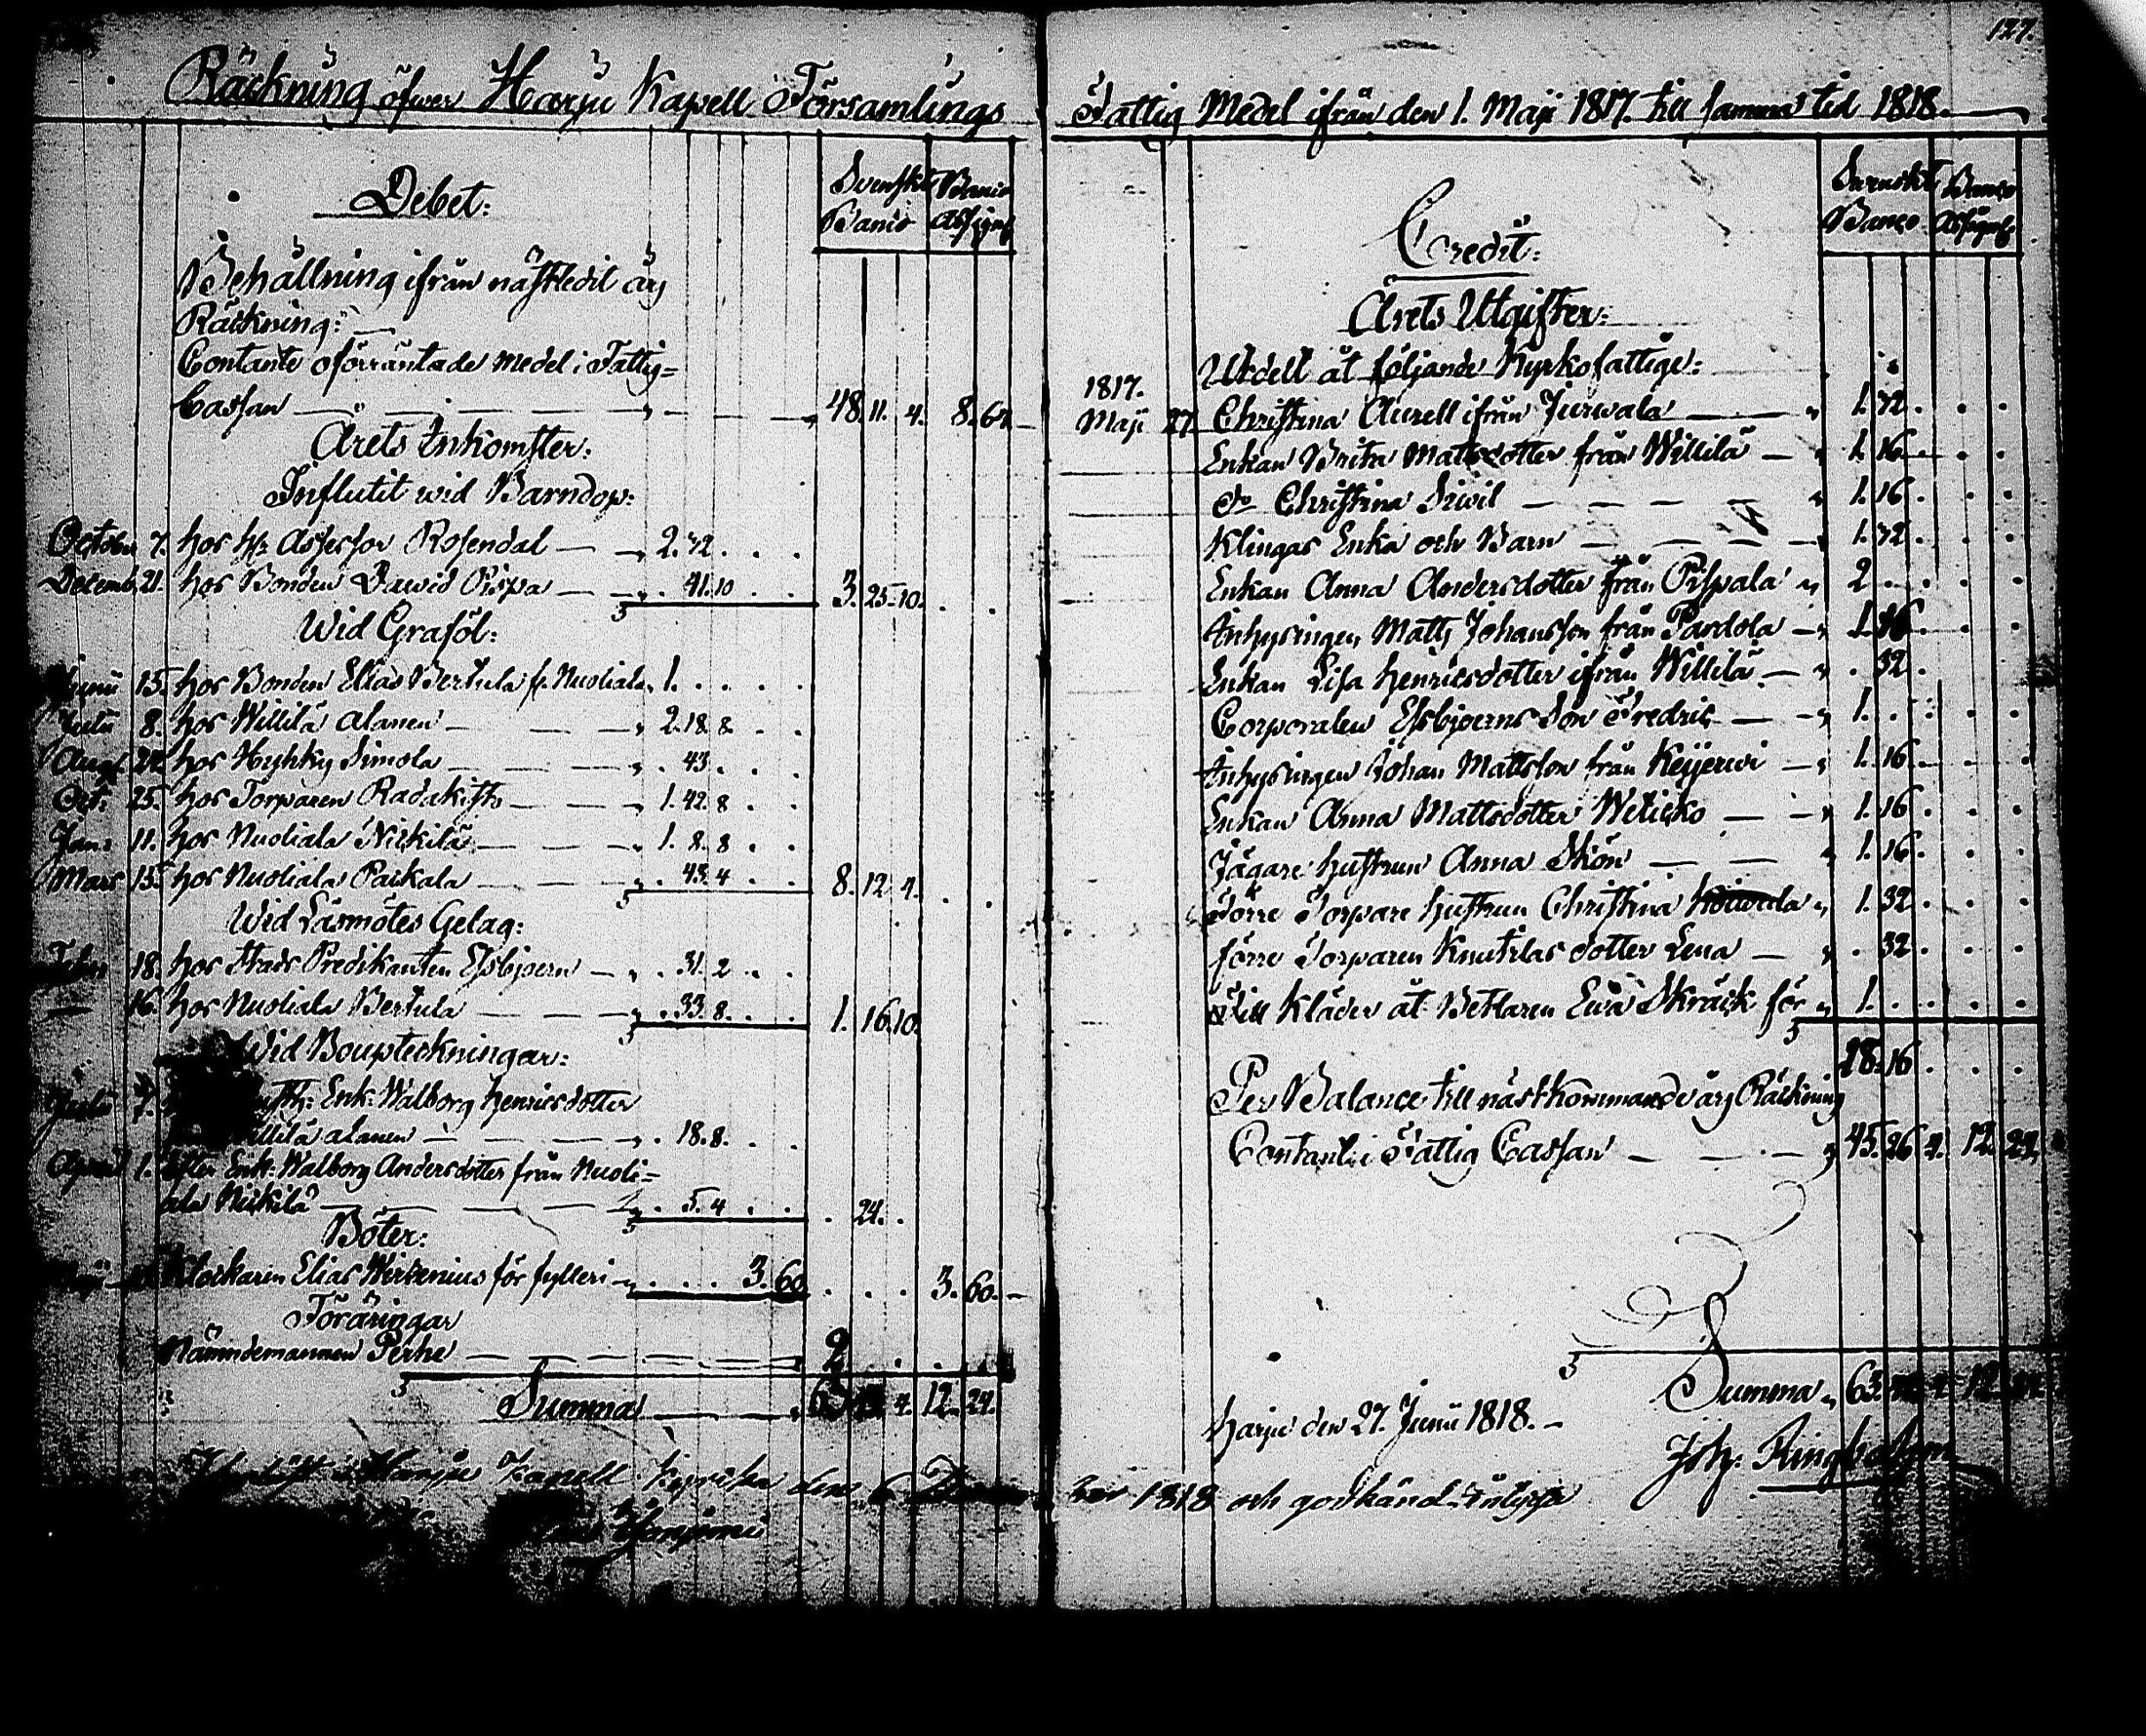 127.
Räckning öfwer Harju Kapell Församlings
Debet:
Svenskt Banco
Banco Assign
Behållning ifrån nästledit års
Räckning:
Contante oförräntade medel i Fattig=
Cassan 48. 11. 4. 8. 64
Årets Inkomster:
Influtit wid Barndop:
October 7. hos Hr Assessor Rosendal 2. 32.
Decemb. 21. hos Bonden Dawid Pispa 41. 10 3. 25. 10.
Wid Graföl:
Junii 15. hos Bonden Elias Bertula fr. Nuoliala 1.
Julii 8. hos Willilä Alanen 2. 18. 8.
Aug. 24. hos Hyhky Simola 43.
Oct. 25. hos Torparen Radakifts 1. 42. 8
Jan: 11. hos Nuoliala Nickilä 1. 8. 8
Mars 15. hos Nuoliala Packala 43. 4 8. 12. 4.
Wid Läsmötes Gelag:
Febr 18. hos Stads Predikanten Essbjoern 31. 2
— 16. hos Nuoliala Bertula 33. 8. 1. 16. 10.
Wid Boupteckningar:
Julii 7. Enk: Walborg Henricsdotter
Willilä Alanen 18. 8.
April 1. Efter Enk: Walborg Andersdotter från Nuoli=
ala Nickilä 5. 4 24.
Böter:
Klockaren Elias Wirzenius för fylleri 3. 60 3. 60.
Föräringar
Nämndemannen Perhe 2
Summa 63. 4. 12. 24.
Harju Kapell kyrcka den 6
Fattig Medel ifrån den 1. Maji 1817. till samma tid 1818.
Credit:
Svenskt Banco
Banco Assign
Årets Utgifter:
Utdelt åt följande Kyrkofattige:
1817.
Maji 27. Christina Aurell ifrån Jurwala 1. 32.
Enkan Brita Mattsdotter från Willilä 1. 16
do Christina Siwil 1. 16.
Klingas Enka och Barn 1. 32.
Enkan Anna Andersdotter från Pispala 2
Inhysingen Matts Johansson från Pardola 1. 16
Enkan Lisa Henricsdotter ifrån Willilä 32.
Corporalen Essbjoerns Son Fredric 1.
Inhysingen Johan Mattsson från Keijerwi 1. 16
Enkan Anna Mattsdotter Weticko 1. 16
Jägare hustrun Anna Skön 1. 16.
Förre Torpare hustrun Christina 1. 32
förre Torparen Knutilas dotter Lena 32.
Till Kläder åt Betlaren Ewa Skräck för 1.
18. 16
Per Balance till nästkommande års Räckning
Contant i Fattig Cassan 45. 26 4. 12. 24.
Summa 63. 4. 12.
Harju den 27. Junii 1818.
Joh: Ringbohm
1818 och godkänd